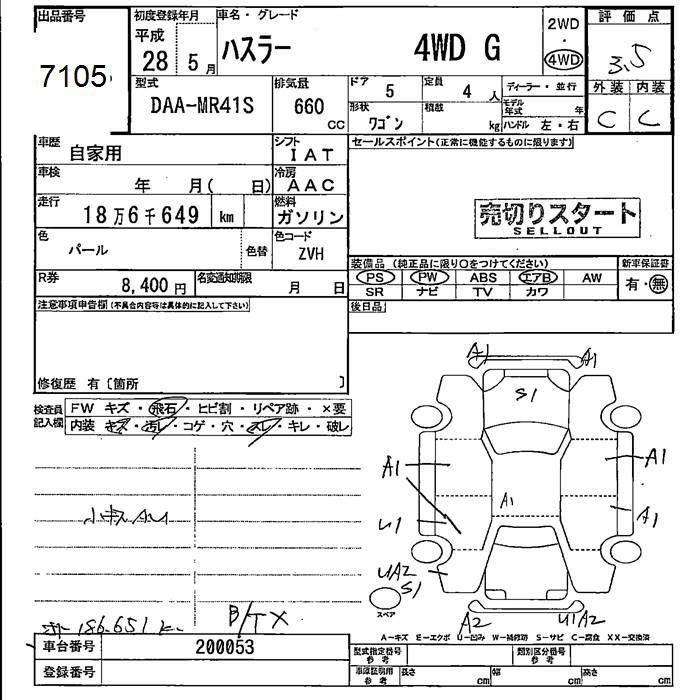 出品番号
7105
初度登録年月
平成
28 5月
車名・グレード
ハスラー 4WD G
2WD
4WD
評価点
3.5
外装 内装
C C
型式
DAA-MR41S
排気量
660 CC
ドア
5
定員
4 人
ディーラー・並行
形状
ワゴン
積載
kg
モデル年式 年
ハンドル 左・右
車歴
自家用
シフト
IAT
セールスポイント(正常に機能するものに限ります)
車検
年 月( 日)
冷房
AAC
走行
18万6千649 km
燃料
ガソリン
売切りスタート
SELLOUT
色
パール
色替
色コード
ZVH
装備品(純正品に限り〇をつけてください)
新車保証書
PS PW ABS エアB AW
有・無
SR ナビ TV カワ
R券
8,400円
名変通知期限
月 日
後日品
注意事項申告欄(不具合内容等は具体的に記入して下さい)
修復歴 有〔箇所 〕
検査員記入欄
FW キズ・飛石・ヒビ割・リペア跡・×要
内装 キズ・汚レ・コゲ・穴・スレ・キレ・破レ
A1 A1
S1
A1 A1
A1
U1 A1
UA2
S1
スペア
A2 U1A2
小キズAU
186.651
B/TX
A-キズ E-エクボ U-凹み W-補修跡 S-サビ C-腐食 XX-交換済
車台番号
200053
型式指定番号
参考
類別区分番号
参考
登録番号
車庫証明用
参考
長さ cm 幅 cm 高さ cm